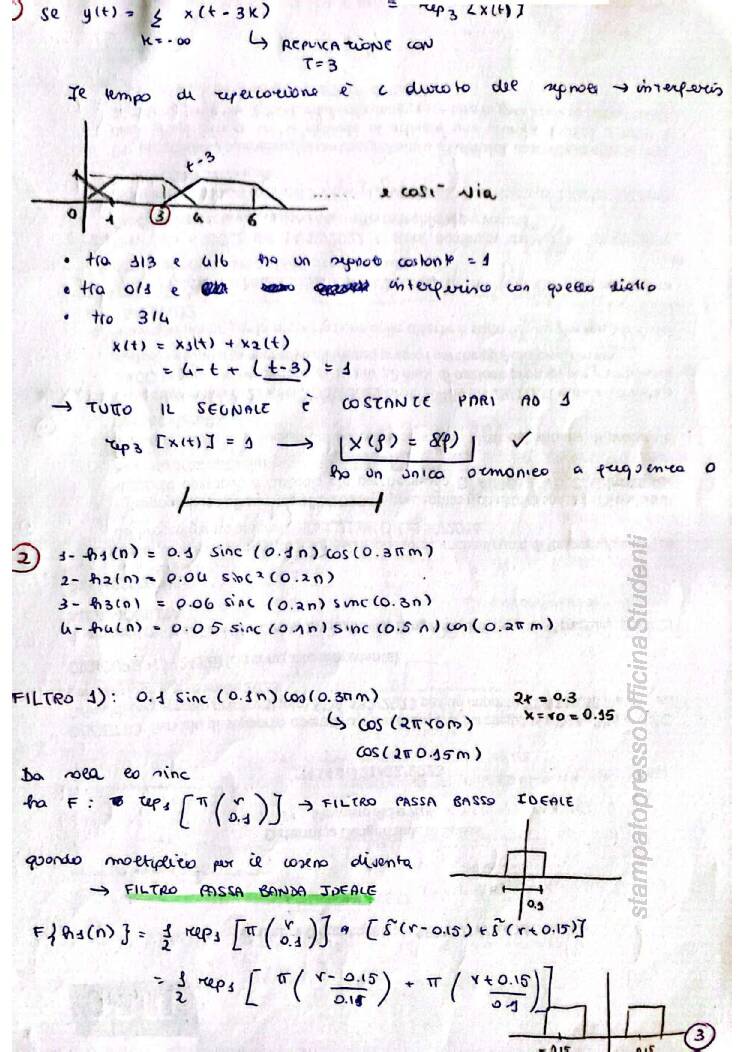 se y(t) = Σ x(t - 3k) = rep3 [x(t)]
k=-∞ ↳ REPLICAZIONE CON
T=3
Il tempo di replicazione è < durata del segnale → interferis
1 t-3
0 1 3 4 6 ...... e così via
• tra 1/3 e 4/6 ho un segnale costante = 1
• tra 0/1 e interferisce con quello dietro
• tra 3/4
x(t) = x1(t) + x2(t)
= 4-t + (t-3) = 1
→ TUTTO IL SEGNALE È COSTANTE PARI AD 1
rep3 [x(t)] = 1 → X(f) = δ(f) ✓
ho un unica armonica a frequenza 0
2 1- h1(n) = 0.1 sinc (0.1n) cos(0.3πn)
2- h2(n) = 0.04 sinc²(0.2n)
3- h3(n) = 0.06 sinc (0.2n) sinc(0.3n)
4- h4(n) = 0.05 sinc(0.1n) sinc(0.5n) cos(0.2πn)
FILTRO 1): 0.1 sinc (0.1n) cos(0.3πn) 2x = 0.3
↳ cos(2πν0n) x = ν0 = 0.15
cos(2π0.15n)
Da sola la sinc
ha F: rep1 [π(ν/0.1)] → FILTRO PASSA BASSO IDEALE
quando moltiplico per il coseno diventa
→ FILTRO PASSA BANDA IDEALE
0.1
F{h1(n)} = 1/2 rep1 [π(ν/0.1)] * [δ(ν-0.15) + δ(ν+0.15)]
= 1/2 rep1 [π(ν-0.15/0.15) + π(ν+0.15/0.1)]
-0.15 0.15
3
stampatopressoOfficinaStudenti